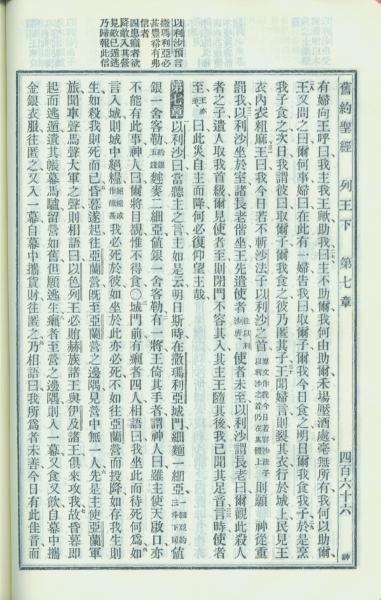 舊約聖經 列王下 第七章 四百六十六
有婦向王呼曰我主我王歟助我王曰主不助爾我何由助爾禾場壓酒處毫無所有我何以助爾
王又問之曰爾何事婦曰在此有一婦告我曰取爾子爾我今日食之明日爾我食我子於是烹
我子食之次日我謂彼曰取爾子爾我食之彼乃匿其子王聞婦言則裂其衣行於城上民見王
衣內衣粗麻王曰我今日若不斬沙法子以利沙之首則願 神從重
罰我以利沙坐於室諸長老偕坐王先遣使者往以利沙所使者未至以利沙謂長老曰爾觀此殺人
者之子遣人取我首級爾見使者至則閉門不容其入其主王隨其後我已聞其足音言時使者
至王亦至曰此災自主而降何必復仰望主哉
以利沙預言
撒瑪利亞必
甚豐裕有弗
信者
第七章以利沙曰當聽主之言主如是云明日斯時在撒瑪利亞城門細麵一細亞值
銀一舍客勒麰麥二細亞值銀一舍客勒有一將王倚其手者謂神人曰雖主使天啟口亦
不能有此事神人曰爾將目覩惟不得食○城門前有癩者四人相語曰我坐此而待死何為如
四患癩者就
降敵入其營
見敵已逃遁
乃歸報此信
言入城則城中絕糧我必死於彼如坐於此亦必死不如往亞蘭營而投降如存我生則
生如殺我則死而已昏暮遂起往亞蘭營既至亞蘭營之邊隅見營中無一人先是主使亞蘭軍
旅聞車聲馬聲大軍之聲則相語曰以色列王必賄赫族諸王與伊及諸王俱來攻我故昏暮即
起而逃遁遺其帳幕馬驢留營如舊但願逃生癩者至營之邊隅則入一幕又食又飲自幕中攜
金銀衣服往匿之又入一幕自幕中攜貨財往匿之乃相語曰我所為者未善今日有此佳音而